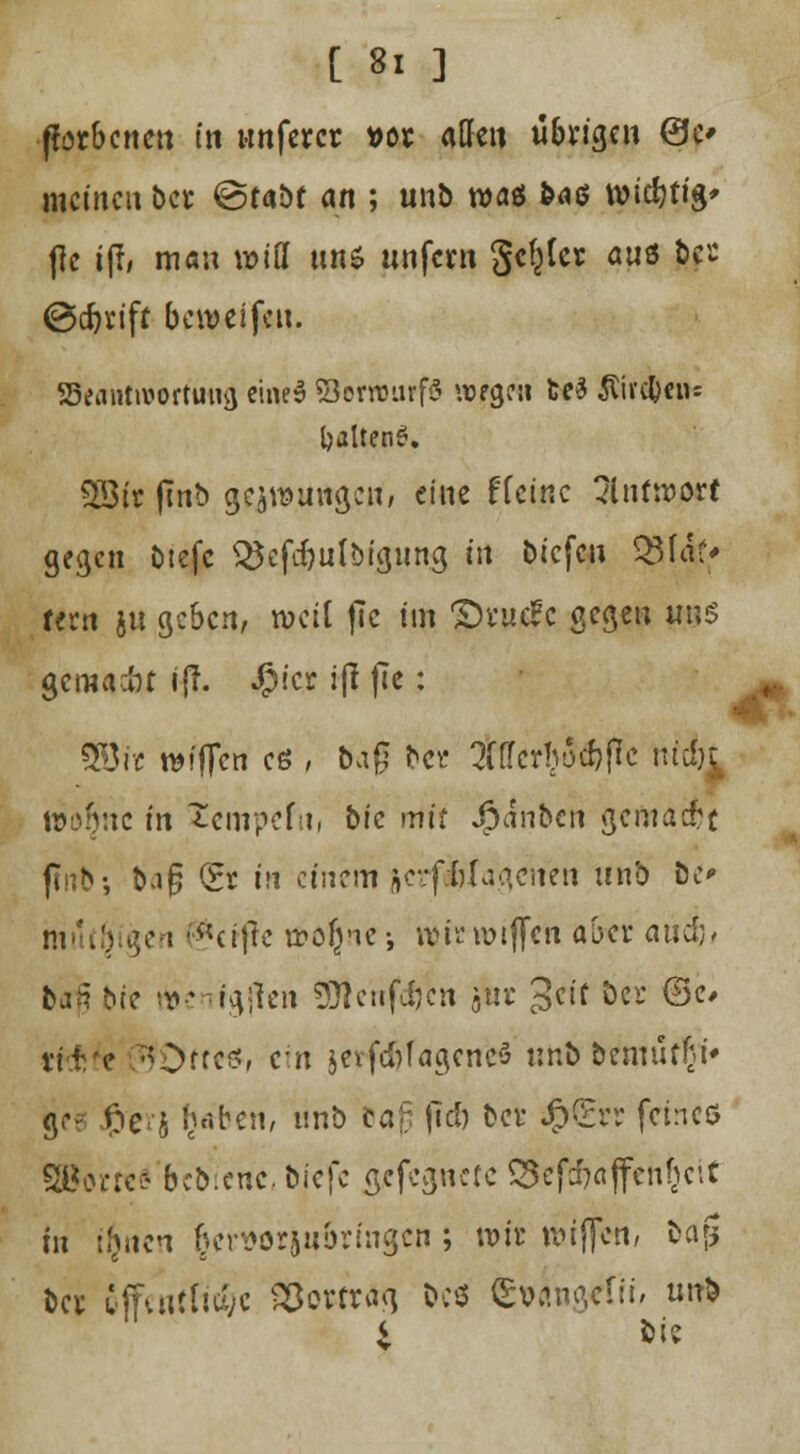 [ 81 ]
storbenen in unserer vor allen übrigen Ge-
meinen der Stadt an ; und was das wichtig-
ste ist, man will uns unsern Fehler aus der
Schrift beweisen.
Beantwortung eines Vorwurfs wegen des Kirchen-
haltens.
Wir sind gezwungen, eine kleine Antwort
gegen diese Beschuldigung in diesen Blät-
tern zu geben, weil sie im Drucke gegen uns
gemacht ist. Hier ist sie :
Wir wissen es , daß der Allerhöchste nicht
wohne in Tempeln, die mit Händen gemacht
sind; daß Er in einem zerschlagenen und de-
müthigen Geiste wohne; wir wissen aber auch,
daß die wenigsten Menschen zur Zeit der Ge-
richte GOttes, ein zerschlagenes und demüthi-
ges Herz haben, und daß sich der HErr seines
Wortes bediene, diese gesegnete Beschaffenheit
in ihnen hervorzubringen ; wir wissen, daß
der öffentliche Vortrag des Evangelii, und
L die